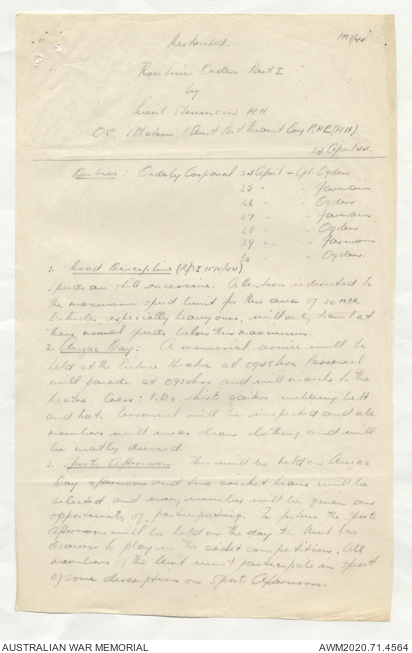 Restricted.
Routine Orders Part I
by
Lieut Stevenson H H
O.C. 1 Platoon, 1 Aust Port Maint Coy RAE (AIF)
24 April 44
Duties: Orderly Corporal 24 April - Cpl Ogden
25 - Jarmain
26 - Ogden
27 - Jarmain
28 - Ogden
29 - Jarmain
30 - Ogden.
1. Road Discipline
Speeds are still excessive. Attention is directed to
the maximum speed limit for this area of 20 M.P.H.
Vehicles, especially heavy ones, will only travel at
their normal speeds below this maximum.
2. Anzac Day: A memorial service will be
held at the picture theatre at 0945hrs. Personnel
will parade at 0920hrs and will march to the
theatre. Dress: K.Ds, shirts, gaiters, webbing belt
and hat. Personnel will be inspected and all
members will wear clean clothing and will
be neatly dressed.
3. Sports Afternoon This will be held on Anzac
Day afternoon and two cricket teams will be
selected and every member will be given an
opportunity of participating. In future the sports
afternoon will be held on the day the Unit has
drawn to play in the cricket competition. All
members of the Unit must participate in sport
of some description on Sports Afternoon.
AUSTRALIAN WAR MEMORIAL
AWM2020.71.4564